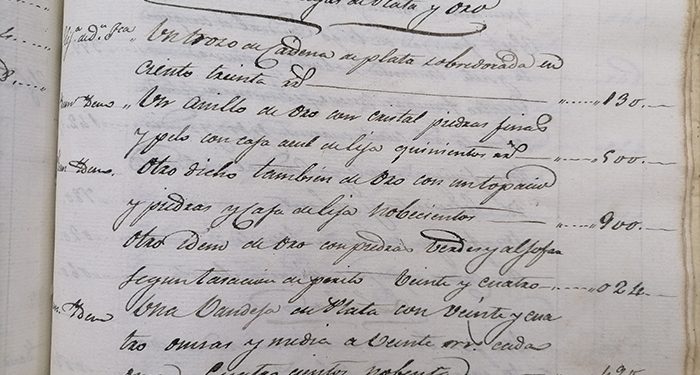 de Plata y Oro
Un trozo de Cadena de plata sobredorada en
ciento treinta rs 130.
Un anillo de Oro con cristal piedras finas
y pelo con caja azul de lija quinientos rs 500.
Otro dicho tambien de Oro con un topacio
y piedras y Caja de lija nobecientos 900.
Otro idem de Oro con piedras verdes y aljofar
segun tasacion de perito veinte y cuatro 024.
Una Vandeja de Plata con veinte y cua
tro onzas y media a veinte rrs. cada
cuatrocientos nobenta 490.